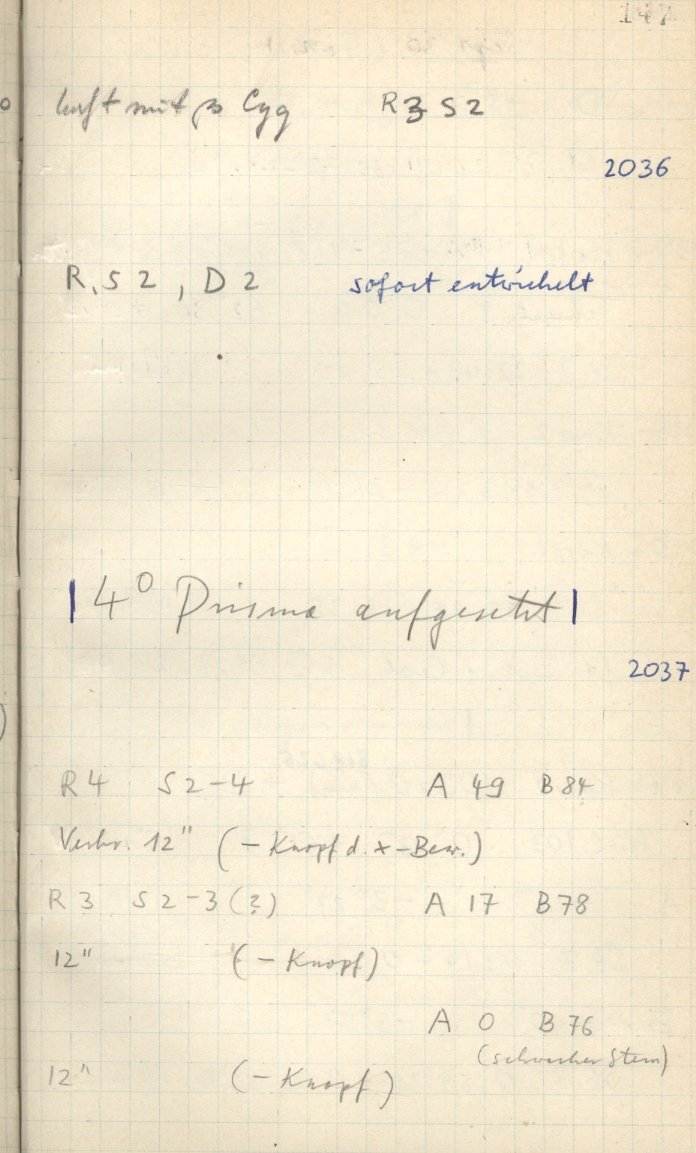 147
Luft mit β Cyg R3 S2
2036
R, S 2, D 2 sofort entwickelt
|4° Prisma aufgesetzt|
2037
R4 S2-4 A 49 B84
Verbr. 12" (- Knopf d. x-Bew.)
R3 S2-3(?) A 17 B78
12" (- Knopf)
A 0 B76
(schwacher Stern)
12" (- Knopf)